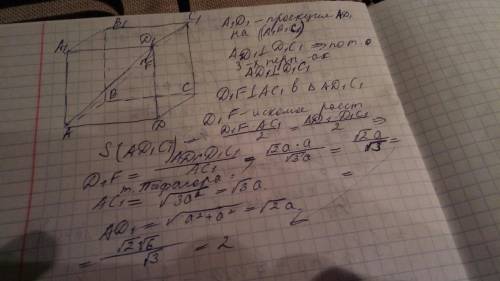 B₁ C₁
A₁ D₁
F
B C
A D
A₁D₁ - проекция AD₁
на (A₁B₁C₁)
A₁D₁⊥D₁C₁ ⇒ по т. о
3-х перп-ах
AD₁⊥D₁C₁
D₁F⊥AC₁ в ΔAD₁C₁
D₁F - искомое расст
S(AD₁C₁) = D₁F·AC₁/2 = AD₁·D₁C₁/2 ⇒
D₁F = AD₁·D₁C₁/AC₁ = √2a·a/√3a = √2a/√3 =
т. Пифагора:
AC₁ = √3a² = √3a
AD₁ = √a²+a² = √2a
= √2·√6/√3 = 2